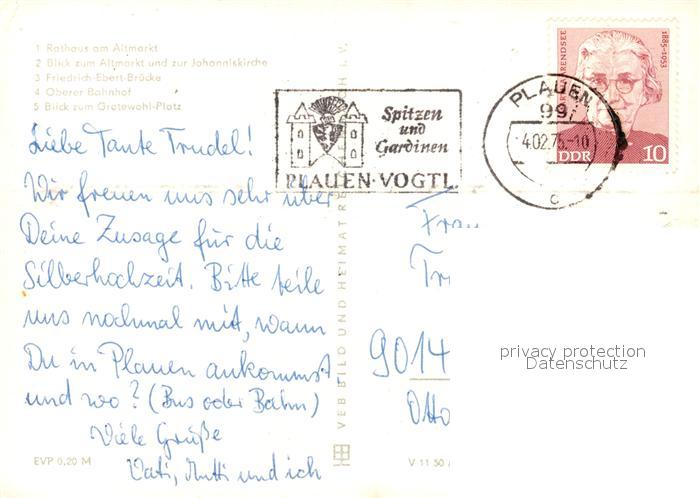 1 Rathaus am Altmarkt
2 Blick zum Altmarkt und zur Johanniskirche
3 Friedrich-Ebert-Brücke
4 Oberer Bahnhof
5 Blick zum Grotewohl-Platz
Liebe Tante Trudel!
Wir freuen uns sehr über
Deine Zusage für die
Silberhochzeit. Bitte teile
uns nochmal mit, wann
Du in Plauen ankommst
und wo? (Bus oder Bahn)
Viele Grüße
Vati, Mutti und ich
EVP 0,20 M
VEB BILD UND HEIMAT REICHENBACH I. V.
V 11 50
Spitzen
und
Gardinen
PLAUEN · VOGTL
PLAUEN
99
4.02.76.-10
c
ARENDSEE
1885-1953
DDR 10
Frau
Tr
9014
Otto
privacy protection
Datenschutz